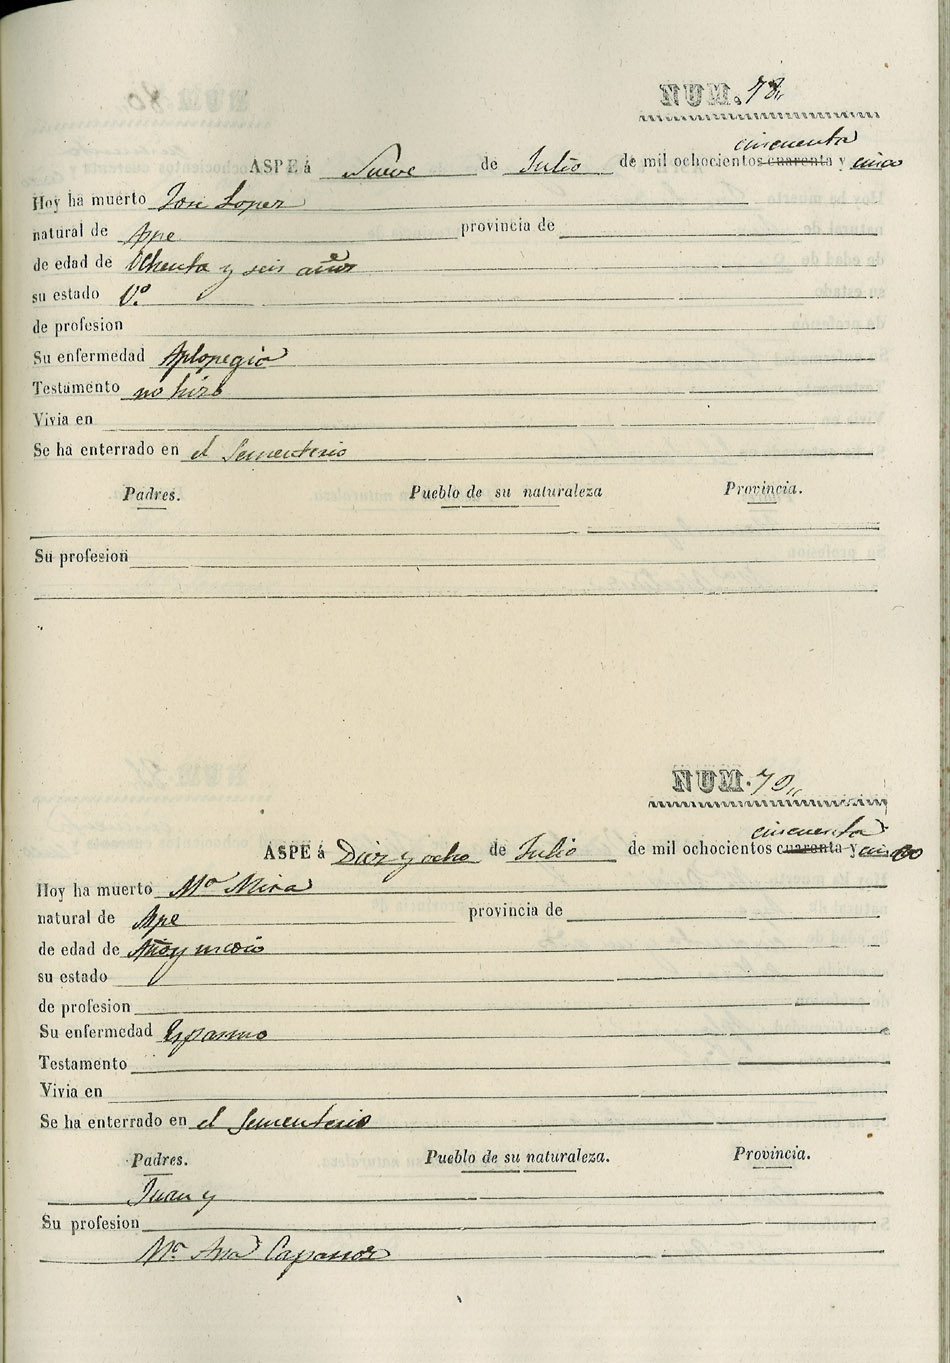 NUM. 78,,
cincuenta
ASPE á Nueve de Julio de mil ochocientos cuarenta y cinco
Hoy ha muerto Jose Lopez
natural de Aspe provincia de
de edad de Ochenta y seis años
su estado V.º
de profesion
Su enfermedad Aplopegia
Testamento no hizo
Vivia en
Se ha enterrado en el Sementerio
Padres. Pueblo de su naturaleza Provincia.
Su profesion
NUM. 79,,
cincuenta
ASPE á Diez y ocho de Julio de mil ochocientos cuarenta y cinco
Hoy ha muerto Mª Mira
natural de Aspe provincia de
de edad de Año y medio
su estado
de profesion
Su enfermedad Espasmo
Testamento
Vivia en
Se ha enterrado en el Sementerio
Padres. Pueblo de su naturaleza. Provincia.
Juan y
Su profesion
Mª Ana